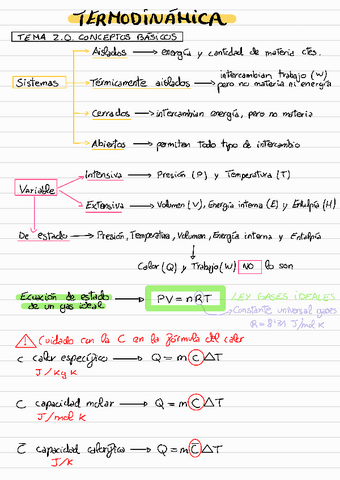 TERMODINÁMICA
TEMA 2.0. CONCEPTOS BÁSICOS
Sistemas
Aislados → energía y cantidad de materia ctes.
Térmicamente aislados → intercambian trabajo (W)
pero no materia ni energía
Cerrados → intercambian energía, pero no materia
Abiertos → permiten todo tipo de intercambio
Variable
Intensiva → Presión (P) y Temperatura (T)
Extensiva → Volumen (V), Energía interna (E) y Entalpía (H)
De estado → Presión, Temperatura, Volumen, Energía interna y Entalpía
Calor (Q) y Trabajo (W) NO lo son
Ecuación de estado
de un gas ideal → PV = nRT LEY GASES IDEALES
Constante universal gases
R = 8'31 J/mol K
! Cuidado con la C en la fórmula del calor
c calor específico → Q = m C △T
J/kg K
C capacidad molar → Q = m C △T
J/mol K
C̄ capacidad calorífica → Q = m C̄ △T
J/K